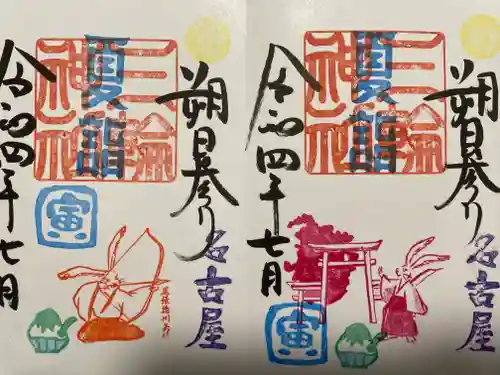 朔日参り
名古屋
三輪神社
夏詣
令和四年七月
寅
朔日参り
名古屋
三輪神社
夏詣
令和四年七月
寅